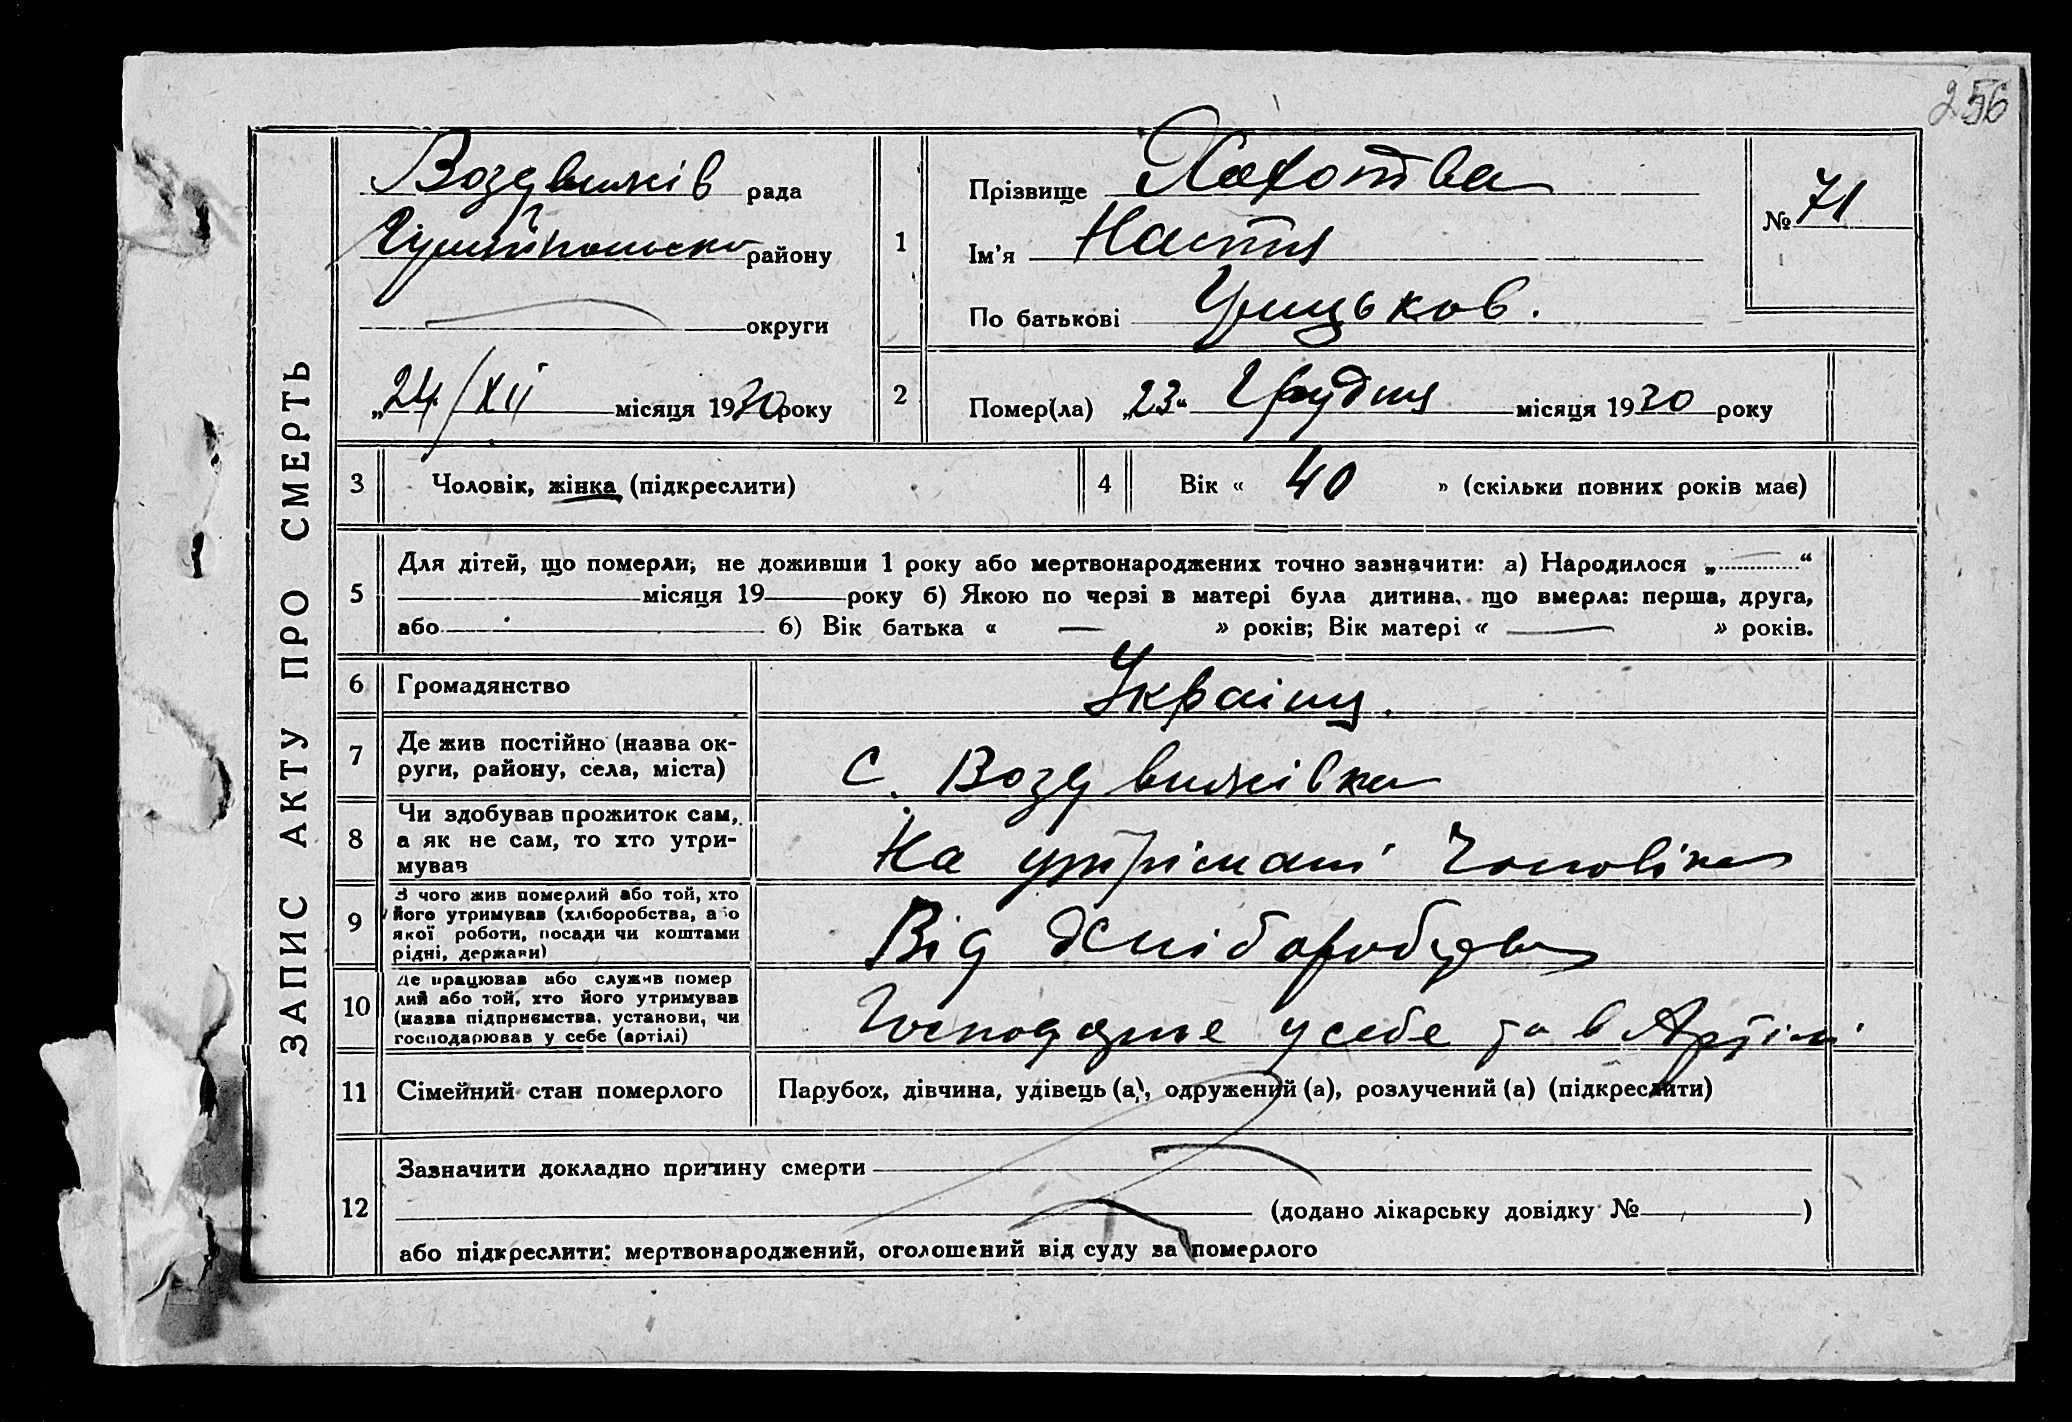 256
ЗАПИС АКТУ ПРО СМЕРТЬ
Воздвижів рада
району
округи
„24/XII місяця 1930 року
1
Прізвище
Ім'я Настя
По батькові Грицьков.
№ 71
2
Помер(ла) „23“ Грудня місяця 1930 року
3
Чоловік, жінка (підкреслити)
4
Вік « 40 » (скільки повних років має)
5
Для дітей, що померли, не доживши 1 року або мертвонароджених точно зазначити: а) Народилося „ “
місяця 19 року б) Якою по черзі в матері була дитина, що вмерла: перша, друга,
або б) Вік батька « — » років; Вік матері « — » років.
6
Громадянство
Україец.
7
Де жив постійно (назва ок-
руги, району, села, міста)
С. Воздвижівка
8
Чи здобував прожиток сам,
а як не сам, то хто утри-
мував
На утрімані Чоловіка
9
З чого жив померлий або той, хто
його утримував (хліборобства, або
якої роботи, посади чи коштами
рідні, держави)
Від Хліборобства
10
Де працював або служив помер
лий або той, хто його утримував
(назва підприємства, установи, чи
господарював у себе (артілі)
у себе та в Артілі
11
Сімейний стан померлого
Парубок, дівчина, удівець (а), одружений (а), розлучений (а) (підкреслити)
12
Зазначити докладно причину смерти
(додано лікарську довідку № )
або підкреслити: мертвонароджений, оголошений від суду за померлого